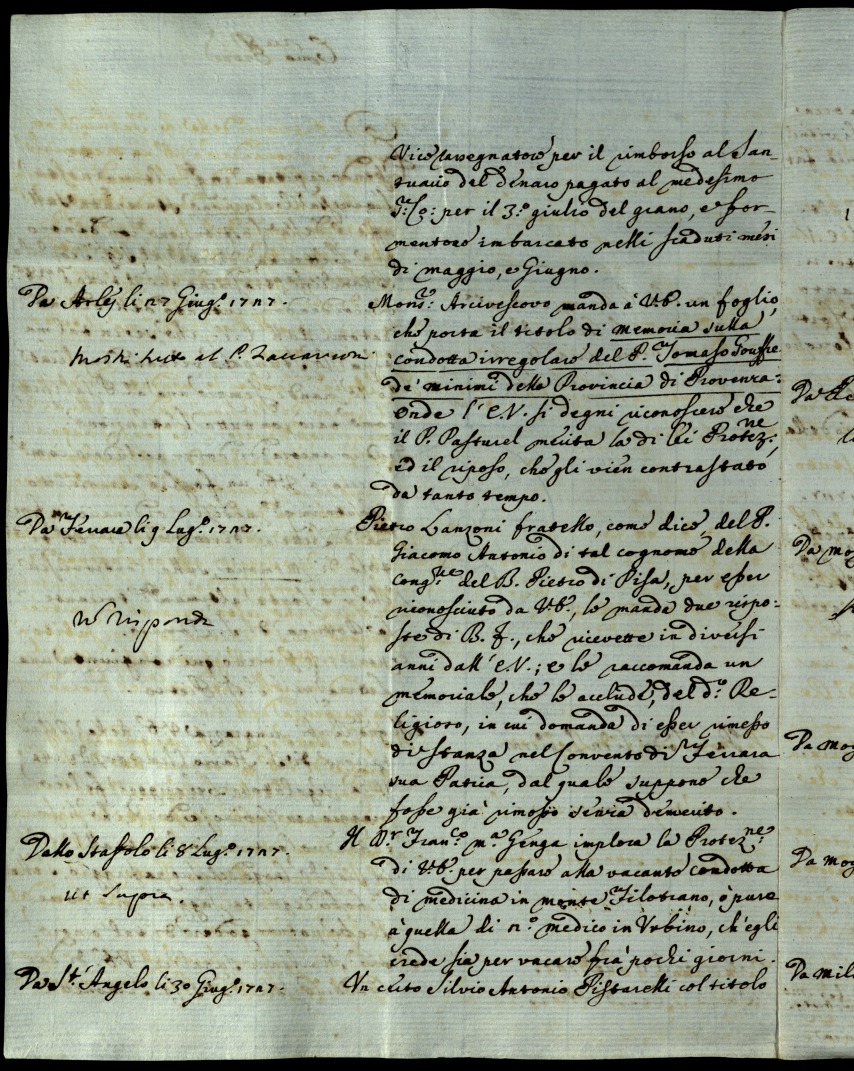 Vicelassegnatore per il rimborso al San-
tuario del denaro pagato al medesimo
per il 3.º giulio del grano, e for-
mentone imbarcato nelli scaduti mesi
di maggio, e Giugno.
Da Arles li 27 Giug.º 1727.
Mons.r Arcivescovo manda à V.E. un foglio,
che porta il titolo di memoria sulla
condotta irregolare del P. Tomaso Gouffre
de' minimi della Provincia di Provenza:
Onde l'E.V. si degni riconoscere che
il P. Pasturel merita la di lei Protez.ne,
ed il riposo, che gli vien contrastato
da tanto tempo.
al P.
Da Ferrara li 9 Lug.º 1727.
Pietro Lanzoni fratello, come dice, del P.
Giacomo Antonio di tal cognome della
Cong.ne del B. Pietro di Pisa, per esser
riconosciuto da V.E., le manda due rispo-
ste di B. F., che ricevette in diversi
anni dall'E.V.; e le raccomanda un
memoriale, che le acclude, del d.º Re-
ligioso, in cui domanda di esser rimesso
di stanza nel Convento di Ferrara
sua Patria, dal quale suppone che
fosse già rimosso senza demerito.
risponde
Dallo Staffolo li 8 Lug.º 1727.
Il D.r Fran.co M.a Genga implora la Protez.ne
di V.E. per passare alla vacante condotta
di medicina in monte Filotrano, ò pure
à quella di 2.º medico in Urbino, ch'egli
crede sia per vacare frà pochi giorni.
Ut supra.
Da St. Angelo li 30 Giug.º 1727.
Un certo Silvio Antonio Pistarelli col titolo